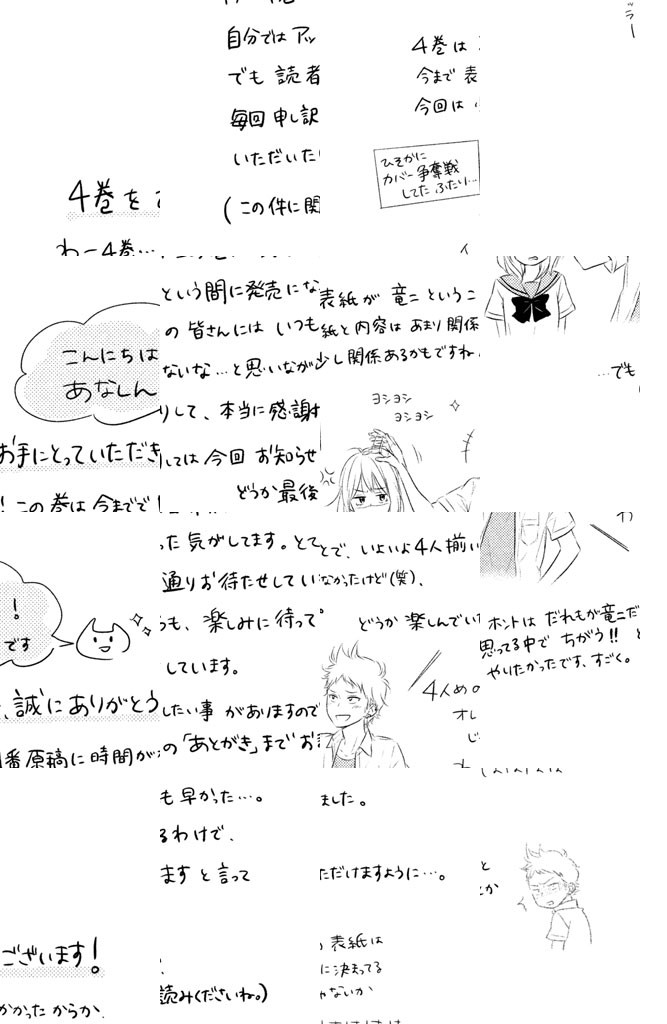 4巻を
わー4巻…
自分では アッ
でも 読者
毎回 申し訳
いただいた
(この件に関
4巻は
今まで 表
今回は
ひそかに
カバー争奪戦
してた ふたり…
こんにちは
あなしん
お手にとっていただき
! この巻は今までで
という間に発売にな
の 皆さんには いつも
ないな…と思いなが
りして、本当に感謝
しては今回 お知らせ
どうか最後
表紙が 竜二というこ
紙と内容は あまり関係
少し関係あるかもですね
ヨシヨシ
ヨシヨシ
…でも
!
です
、誠にありがとう
番原稿に時間が
った 気がしてます。とて
通りお待たせしてい
うも、楽しみに待って
しています。
したい事 がありますので
の「あとがき」まで お
とで、いよいよ4人揃い
なかったけど(笑)、
どうか 楽しんでい
4人めの
オレ
じ
わ
ホントは だれもが竜二だ
思ってる中で ちがう!! と
やりたかったです、すごく。
ございます!
かかった からか、
も 早かった…。
るわけで、
ます と言って
読みくださいね。)
ました。
ただけますように…。
表紙は
に決まってる
ゃないか
と
とか